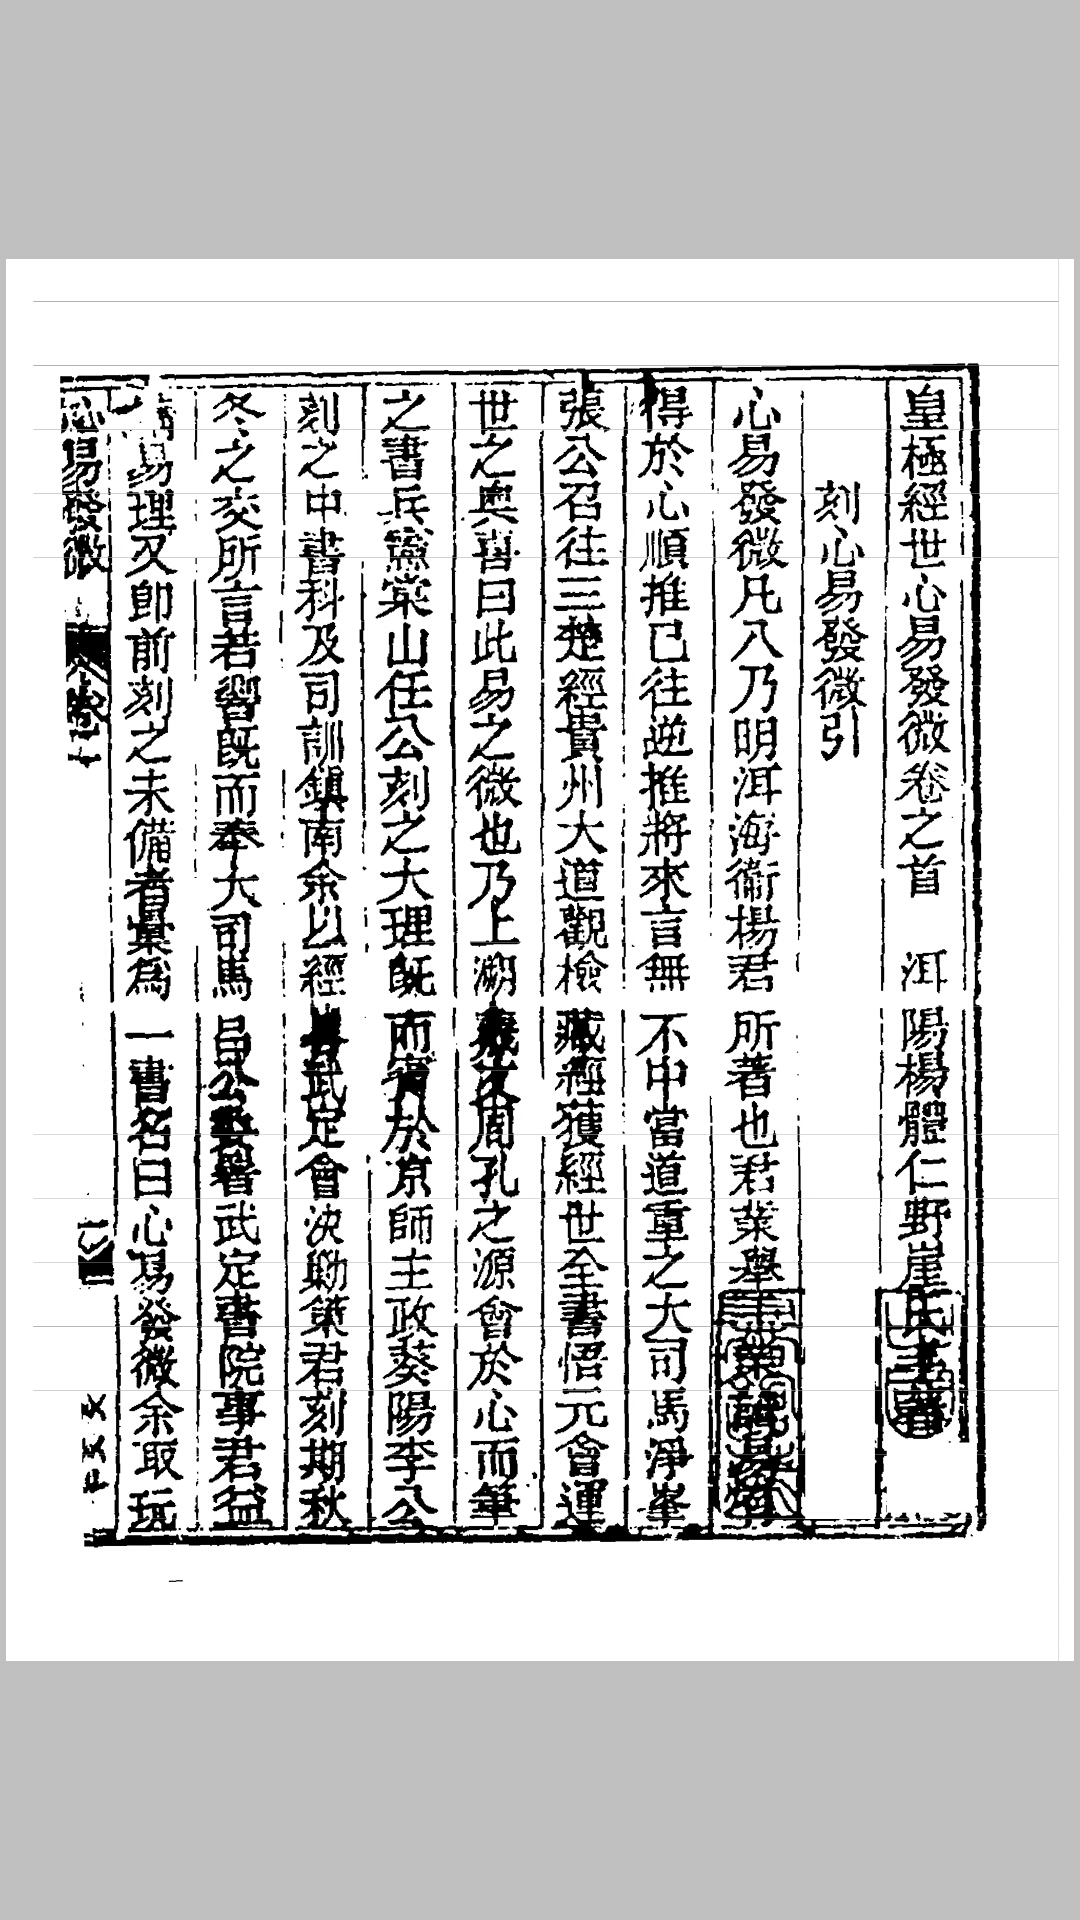 皇極經世心易發微卷之首 洱陽楊體仁野崖氏著
刻心易發微引
心易發微凡八乃明洱海衞楊君所著也君業舉
得於心順推已往逆推將來言無不中當道重之大司馬淨峯
張公召往三楚經貴州大道觀檢藏經獲經世全書悟元會運
世之奧喜曰此易之微也乃上溯周孔之源會於心而筆
之書兵憲棠山任公刻之大理旣而賓於京師主政葵陽李公
刻之中書科及司訓鎮南余以經武定會決勦策君刻期秋
冬之交所言若響旣而奉大司馬呂公署武定書院事君益
易理又卽前刻之未備者彙爲一書名曰心易發微余取玩
心易發微 卷